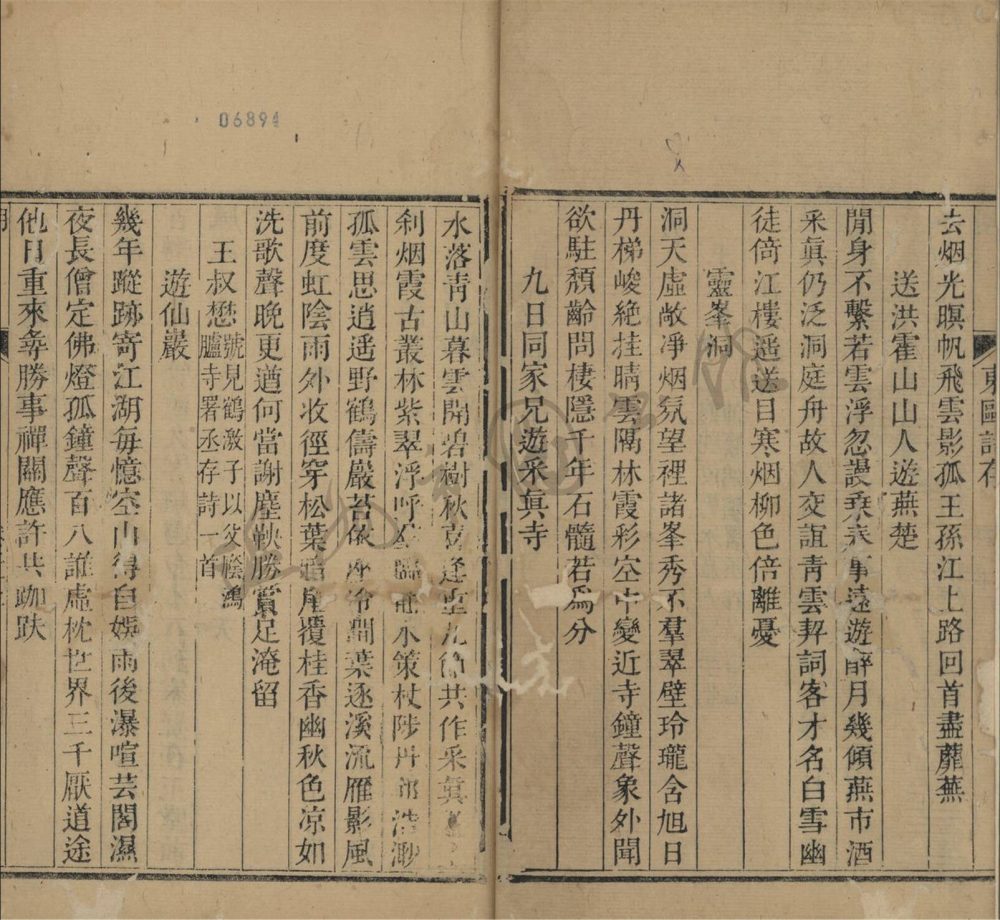 東甌詩存
去烟光暝帆飛雲影孤王孫江上路回首盡蘼蕪
送洪霍山山人遊燕楚
閒身不繫若雲浮忽謾乘事遠遊醉月幾傾燕市酒
采眞仍泛洞庭舟故人交誼靑雲契詞客才名白雪幽
徒倚江樓遥送目寒烟柳色倍離憂
靈峯洞
洞天虛敞凈烟氛望裡諸峯秀不羣翠壁玲瓏含旭日
丹梯峻絶挂晴雲隔林霞彩空中變近寺鐘聲象外聞
欲駐頹齡問棲隱千年石髓若爲分
九日同家兄遊采眞寺
水落靑山暮雲開碧樹秋喜逢重九節共作采眞
刹烟霞古叢林紫翠浮呼水策杖陟丹浩渺
孤雲思逍遥野鶴儔巖苔依冷澗葉逐溪流雁影風
前度虹陰雨外收徑穿松葉覆桂香幽秋色凉如
洗歌聲晚更遒何當謝塵鞅勝賞足淹留
王叔懋號見鶴激子以父廕鴻臚寺署丞存詩一首
遊仙巖
幾年蹤跡寄江湖每憶空山得自娛雨後瀑喧芸閣濕
夜長僧定佛燈孤鐘聲百八誰虛枕世界三千厭道途
他日重來尋勝事禪關應許共跏趺
06894